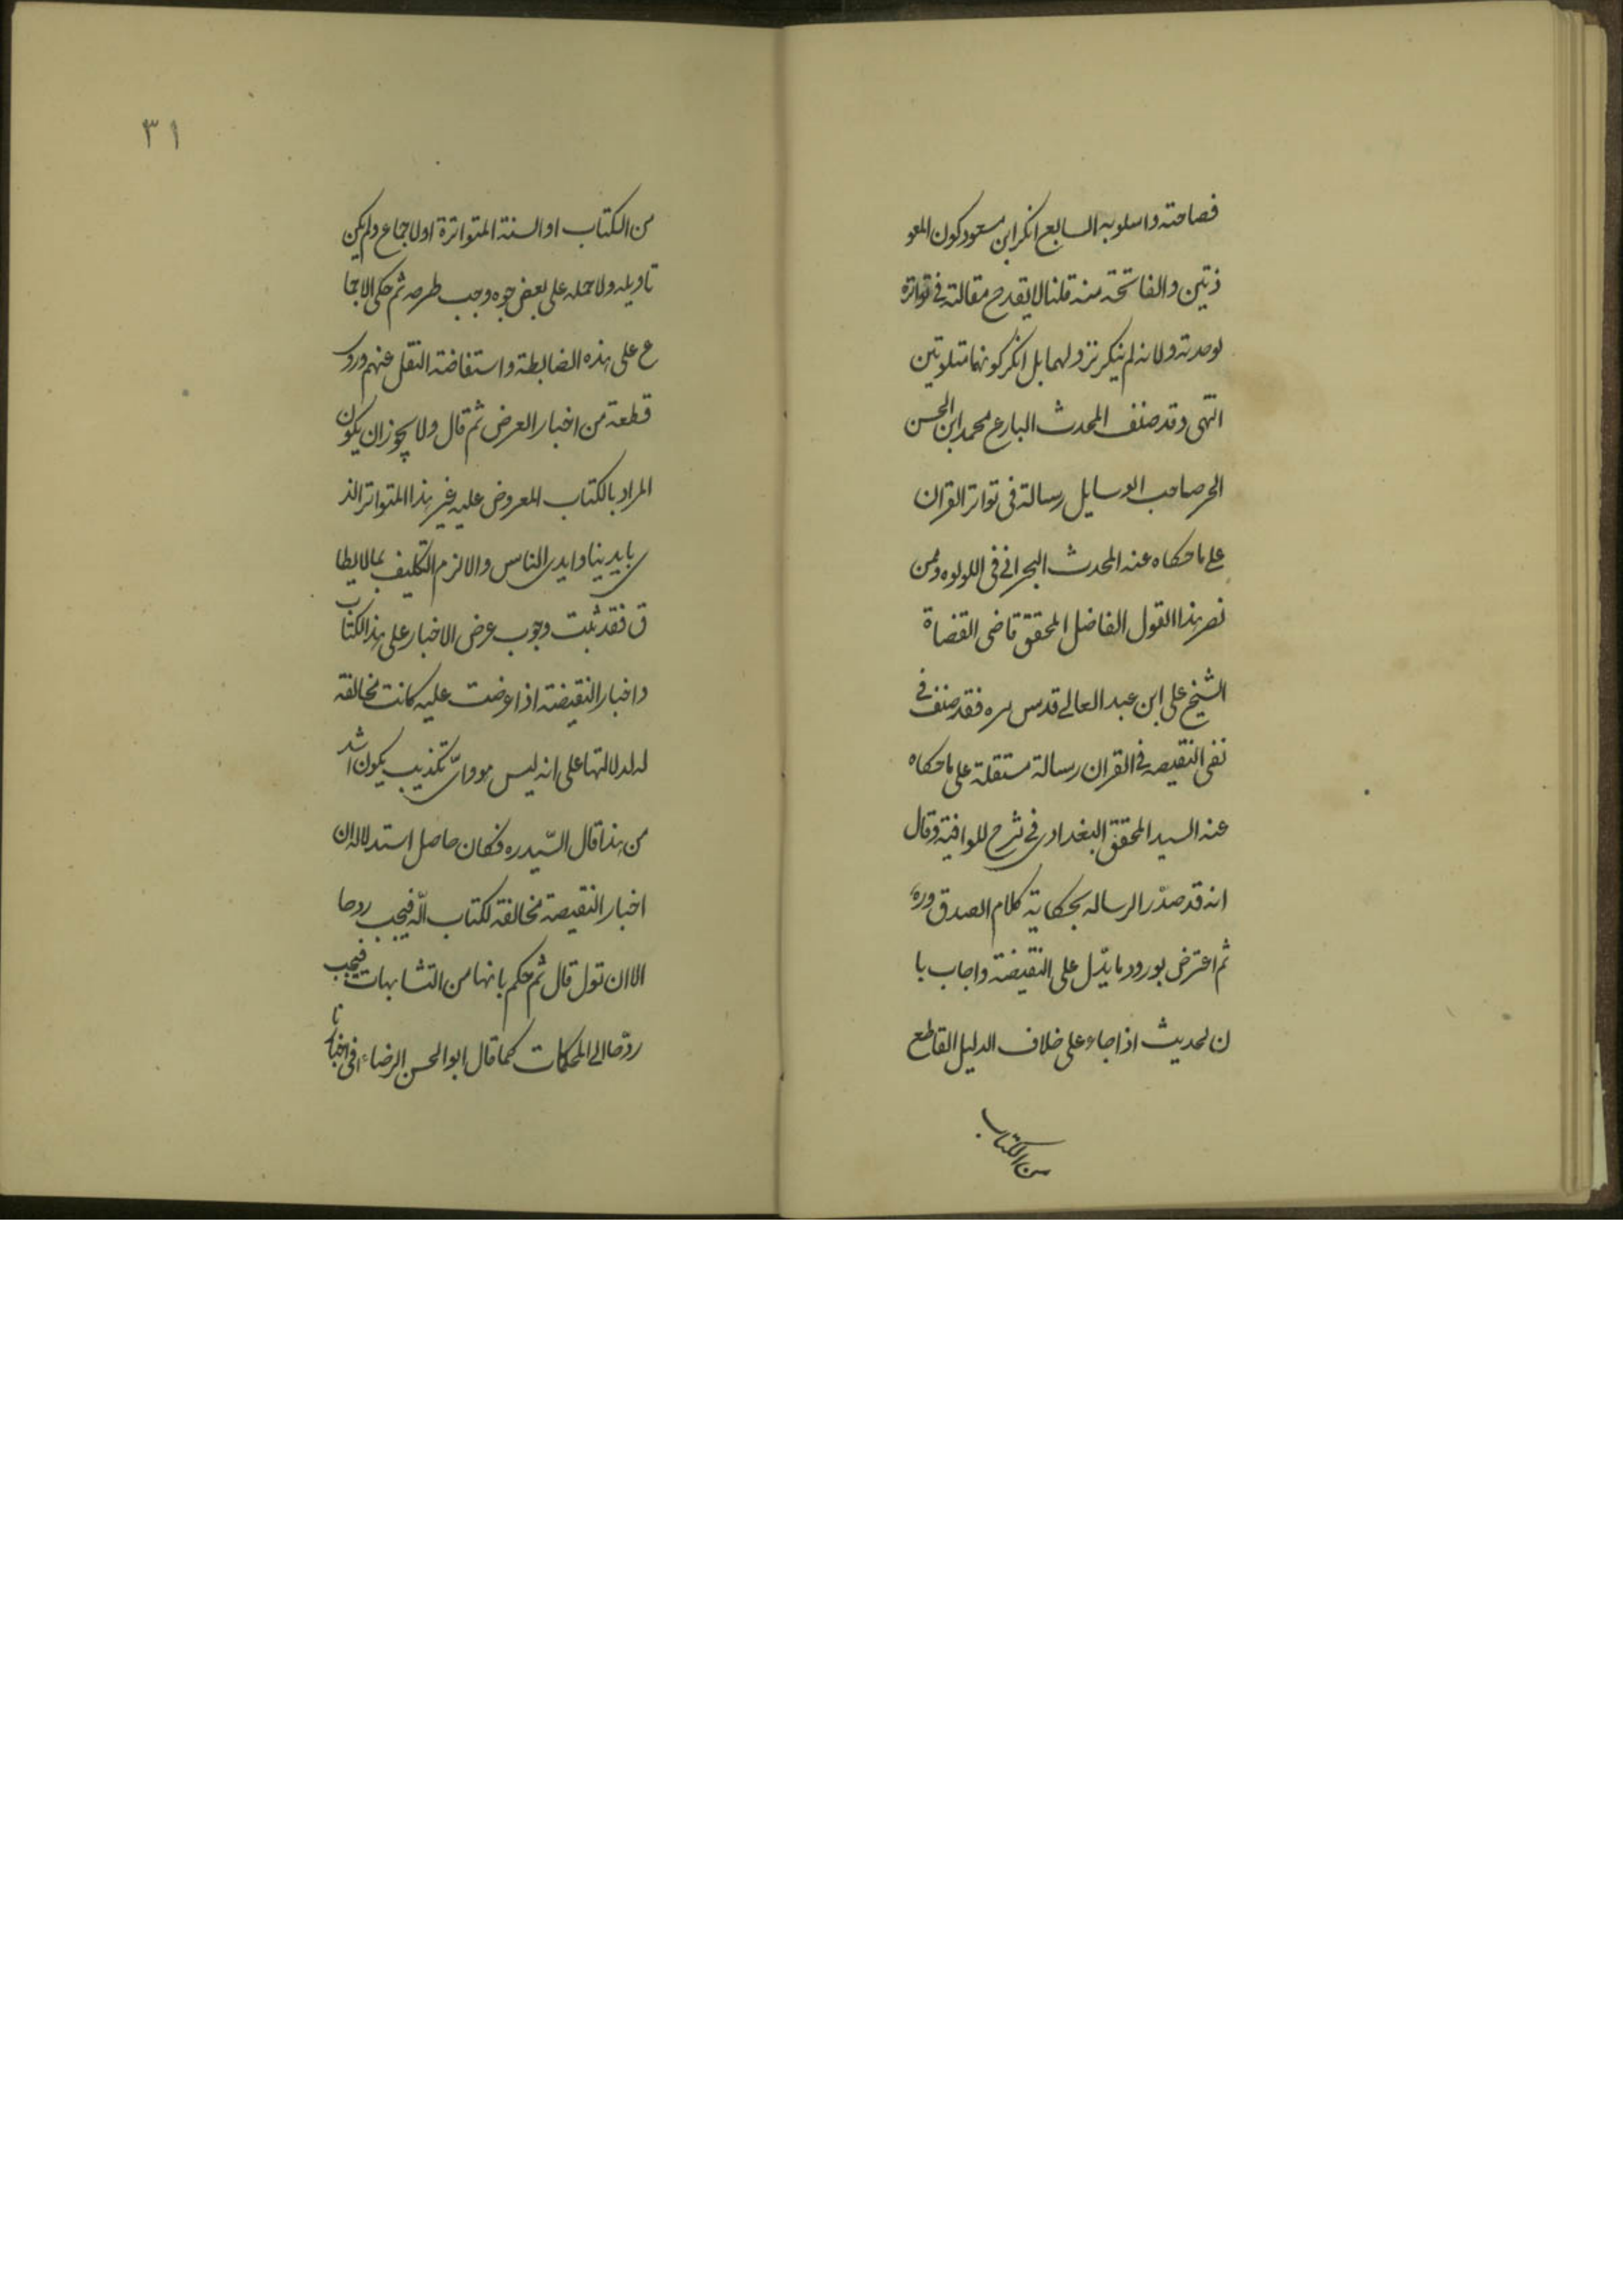 فصاحته واسلوبه السابع انكر ابن مسعود كون المعو
ذتين والفاتحة منه قلنا لا يقدح مقالته في تواتره
لوحدته ولانه لم ينكر نزولهما بل انكر كونهما متلوتين
انتهى وقد صنف المحدث البارع محمد ابن الحسن
الحر صاحب الوسايل رسالة في تواتر القران
على ما حكاه عنه المحدث البحراني في اللولوه وممن
نصر هذا القول الفاضل المحقق قاضى القضاة
الشيخ على ابن عبد العالى قدس سره فقد صنف في
نفى النقيصه في القران رسالة مستقلة على ما حكاه
عنه السيد المحقق البغدادى في شرح للوافية وقال
انه قد صدّر الرساله بحكاية كلام الصدوق ره
ثم اعترض بورود ما يدّل على النقيضة واجاب با
ن لحديث اذا جاء على خلاف الدليل القاطع
من الكتاب
٣١
من الكتاب او السنة المتواترة اولاجماع ولم يكن
تاويله ولا حمله على بعض جوه وجب طرحه ثم حكى الاجما
ع على هذه الضابطة واستفاضة النقل عنهم ورو
قطعة من اخبار العرض ثم قال ولا يجوز ان يكون
المراد بالكتاب المعروض عليه غير هذا المتواتر الذ
ى بايدينا وايدى الناس والا لزم التكليف بما لا يطا
ق فقد ثبت وجوب عرض الاخبار على هذ الكتاب
واخبار النقيضة اذا عرضت عليه كانت مخالفة
له لدلالتها على انه ليس هو واىّ تكذيب يكون اشد
من هذا قال السّيد ره فكان حاصل استدلاله ان
اخبار النقيصة مخالفة لكتاب الله فيجب ردها
الا ان تول قال ثم حكم بانها من التشابهات فيجب
ردّها الى المحكمات كما قال ابو الحسن الرضاء في اخبارنا